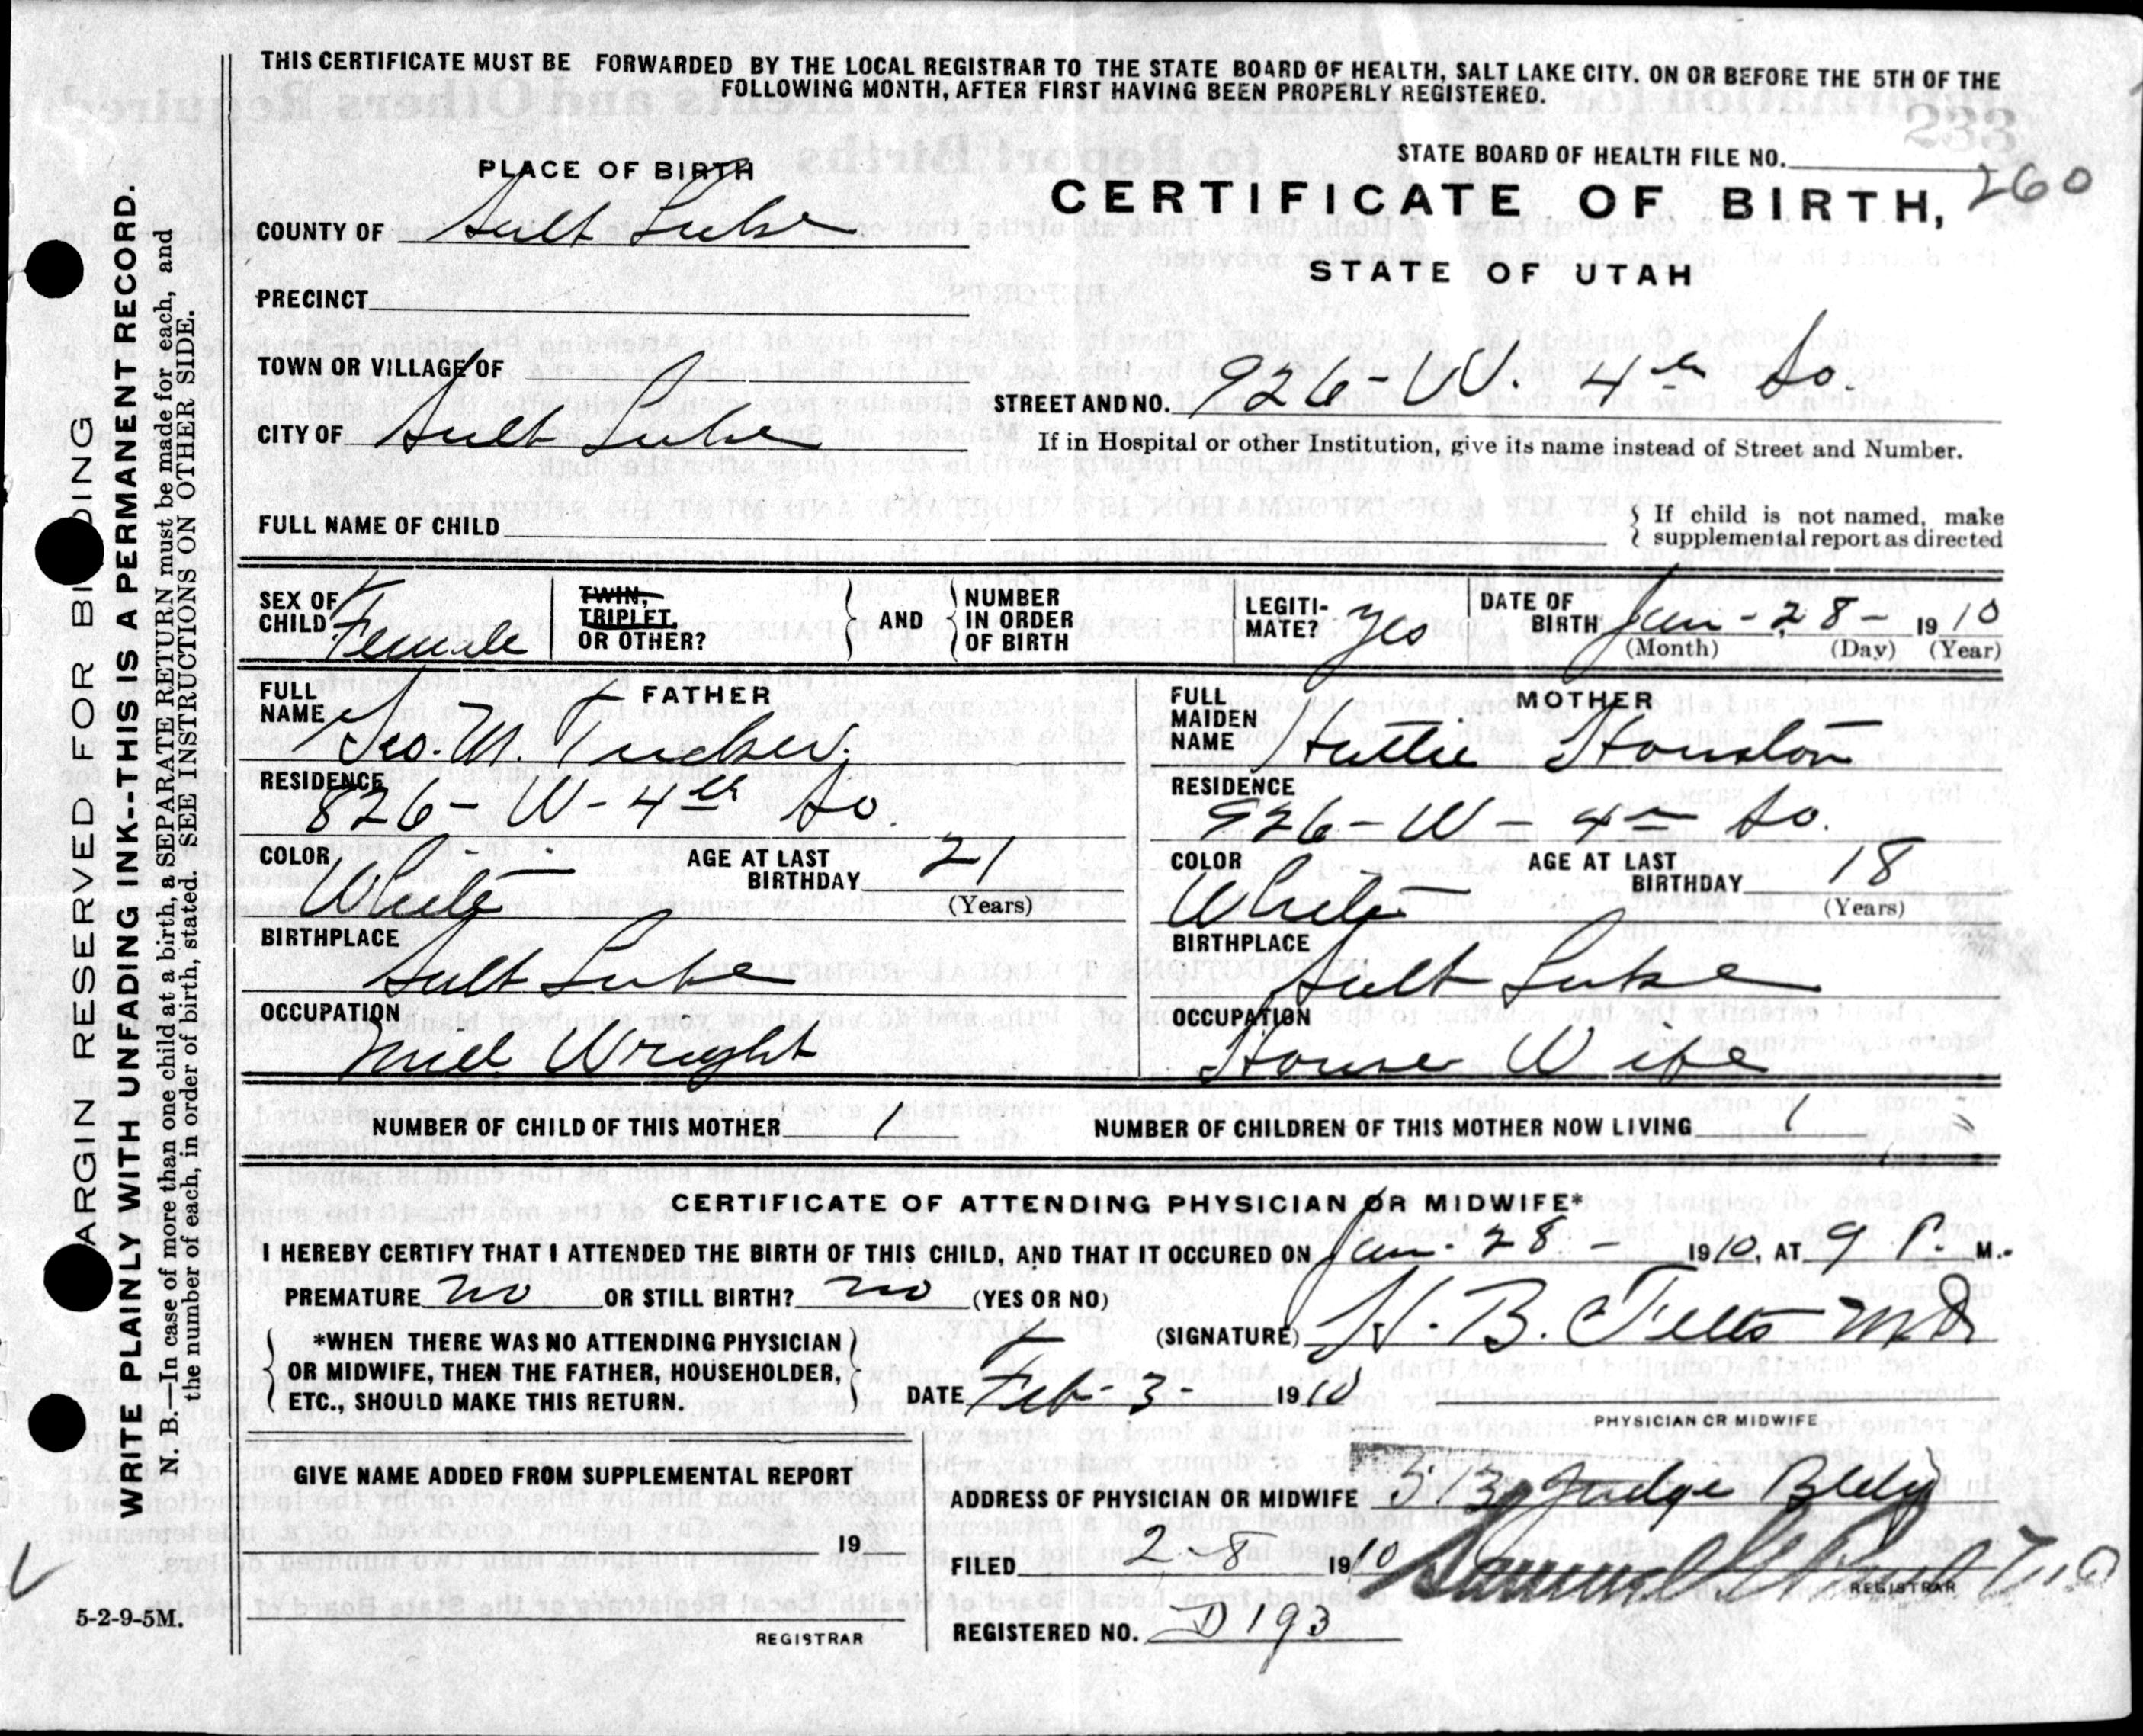 THIS CERTIFICATE MUST BE FORWARDED BY THE LOCAL REGISTRAR TO THE STATE BOARD OF HEALTH, SALT LAKE CITY. ON OR BEFORE THE 5TH OF THE
FOLLOWING MONTH, AFTER FIRST HAVING BEEN PROPERLY REGISTERED.
233
STATE BOARD OF HEALTH FILE NO. 260
PLACE OF BIRTH
CERTIFICATE OF BIRTH,
STATE OF UTAH
COUNTY OF Salt Lake
PRECINCT
TOWN OR VILLAGE OF
STREET AND NO. 926-W. 4th So.
CITY OF Salt Lake
If in Hospital or other Institution, give its name instead of Street and Number.
FULL NAME OF CHILD
If child is not named, make
supplemental report as directed
SEX OF CHILD Female
TWIN, TRIPLET, OR OTHER?
AND
NUMBER IN ORDER OF BIRTH
LEGITIMATE? yes
DATE OF BIRTH Jan-28-1910
(Month) (Day) (Year)
FATHER
FULL NAME Geo. M. Tucker.
RESIDENCE 826-W-4th So.
COLOR White
AGE AT LAST BIRTHDAY 21
(Years)
BIRTHPLACE
Salt Lake
OCCUPATION
Mill Wright
MOTHER
FULL MAIDEN NAME Hattie Houston
RESIDENCE
926-W-4th So.
COLOR White
AGE AT LAST BIRTHDAY 18
(Years)
BIRTHPLACE
Salt Lake
OCCUPATION
House Wife
NUMBER OF CHILD OF THIS MOTHER 1
NUMBER OF CHILDREN OF THIS MOTHER NOW LIVING 1
CERTIFICATE OF ATTENDING PHYSICIAN OR MIDWIFE*
I HEREBY CERTIFY THAT I ATTENDED THE BIRTH OF THIS CHILD, AND THAT IT OCCURED ON Jan. 28- 1910, AT 9 P. M.
PREMATURE no OR STILL BIRTH? no (YES OR NO)
*WHEN THERE WAS NO ATTENDING PHYSICIAN
OR MIDWIFE, THEN THE FATHER, HOUSEHOLDER,
ETC., SHOULD MAKE THIS RETURN.
(SIGNATURE) H. B. MD
DATE Feb-3- 1910
PHYSICIAN OR MIDWIFE
GIVE NAME ADDED FROM SUPPLEMENTAL REPORT
19
REGISTRAR
ADDRESS OF PHYSICIAN OR MIDWIFE 513 Judge Bldg
FILED 2-8 1910 Samuel
REGISTRAR
REGISTERED NO. D193
5-2-9-5M.
ARGIN RESERVED FOR BI DING
WRITE PLAINLY WITH UNFADING INK--THIS IS A PERMANENT RECORD.
N B.—In case of more than one child at a birth, a SEPARATE RETURN must be made for each, and
the number of each, in order of birth, stated. SEE INSTRUCTIONS ON OTHER SIDE.